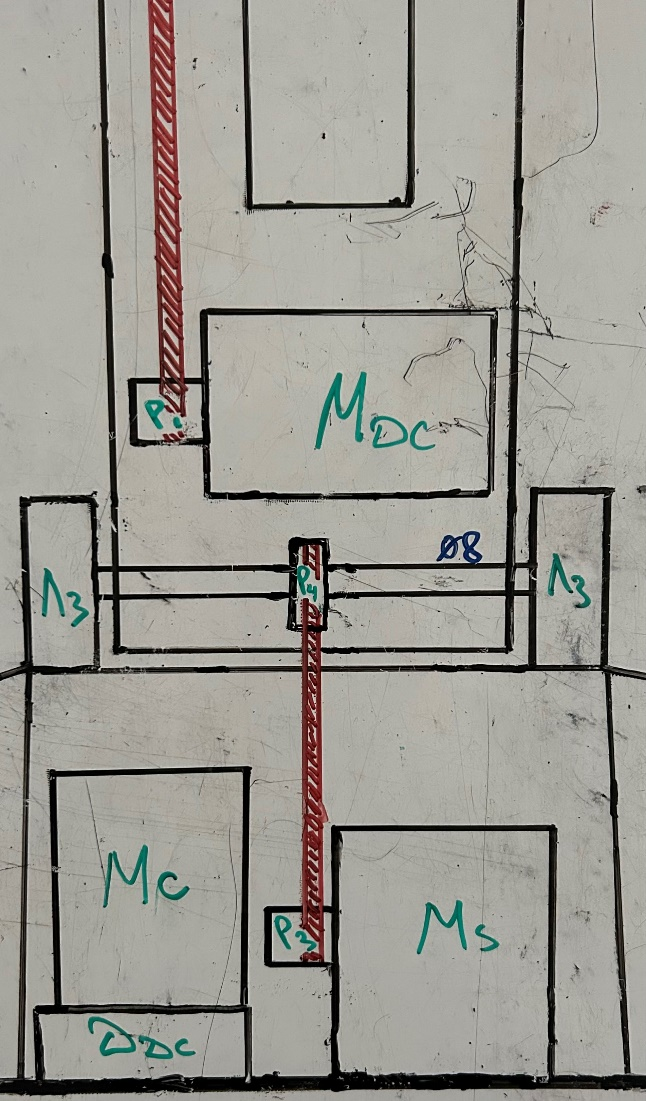 P1
MDC
Ø8
Λ3
P4
Λ3
Mc
P3
Ms
DDC